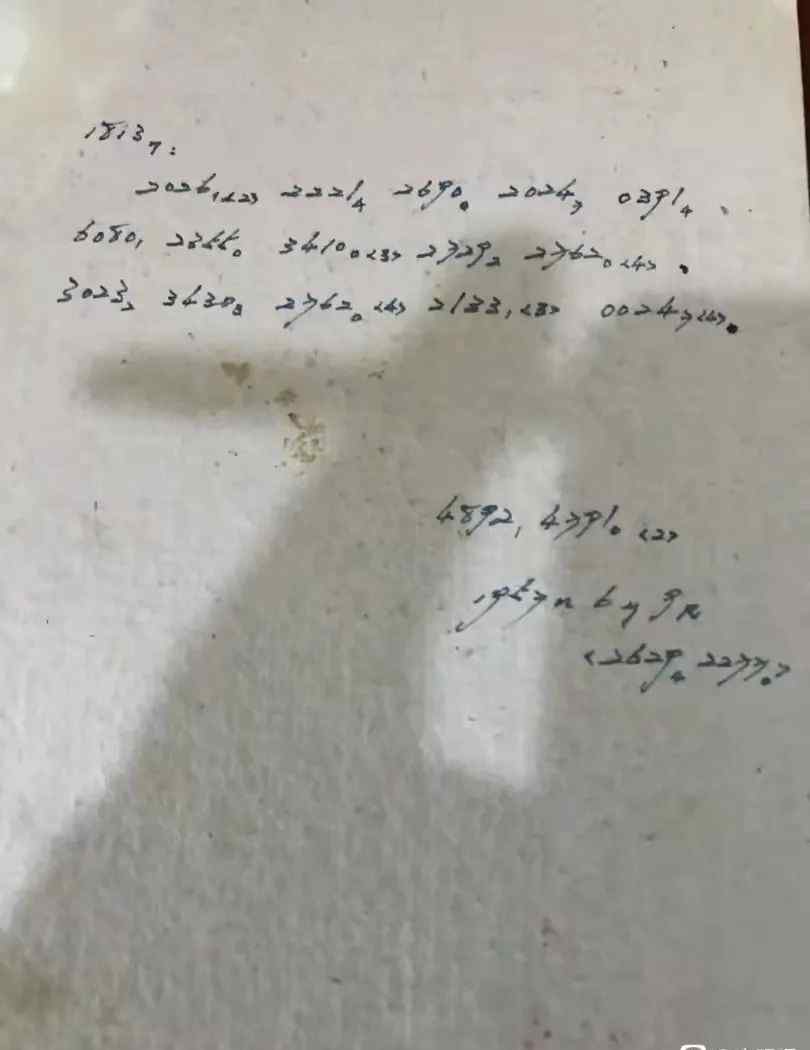 1813₇:
2026₁<2> 2221₄ 2690₀ 2024₇ 0391₄、
6080₁ 2355₀ 3410₀<3> 2729₂ 2762₀<4>。
3023₂ 3430₃ 2762₀<4> 2133₁<3> 0024₇<4>。
4892₁ 4791₀<2>
1957n 6y 9R
<2629₄ 2277₀>